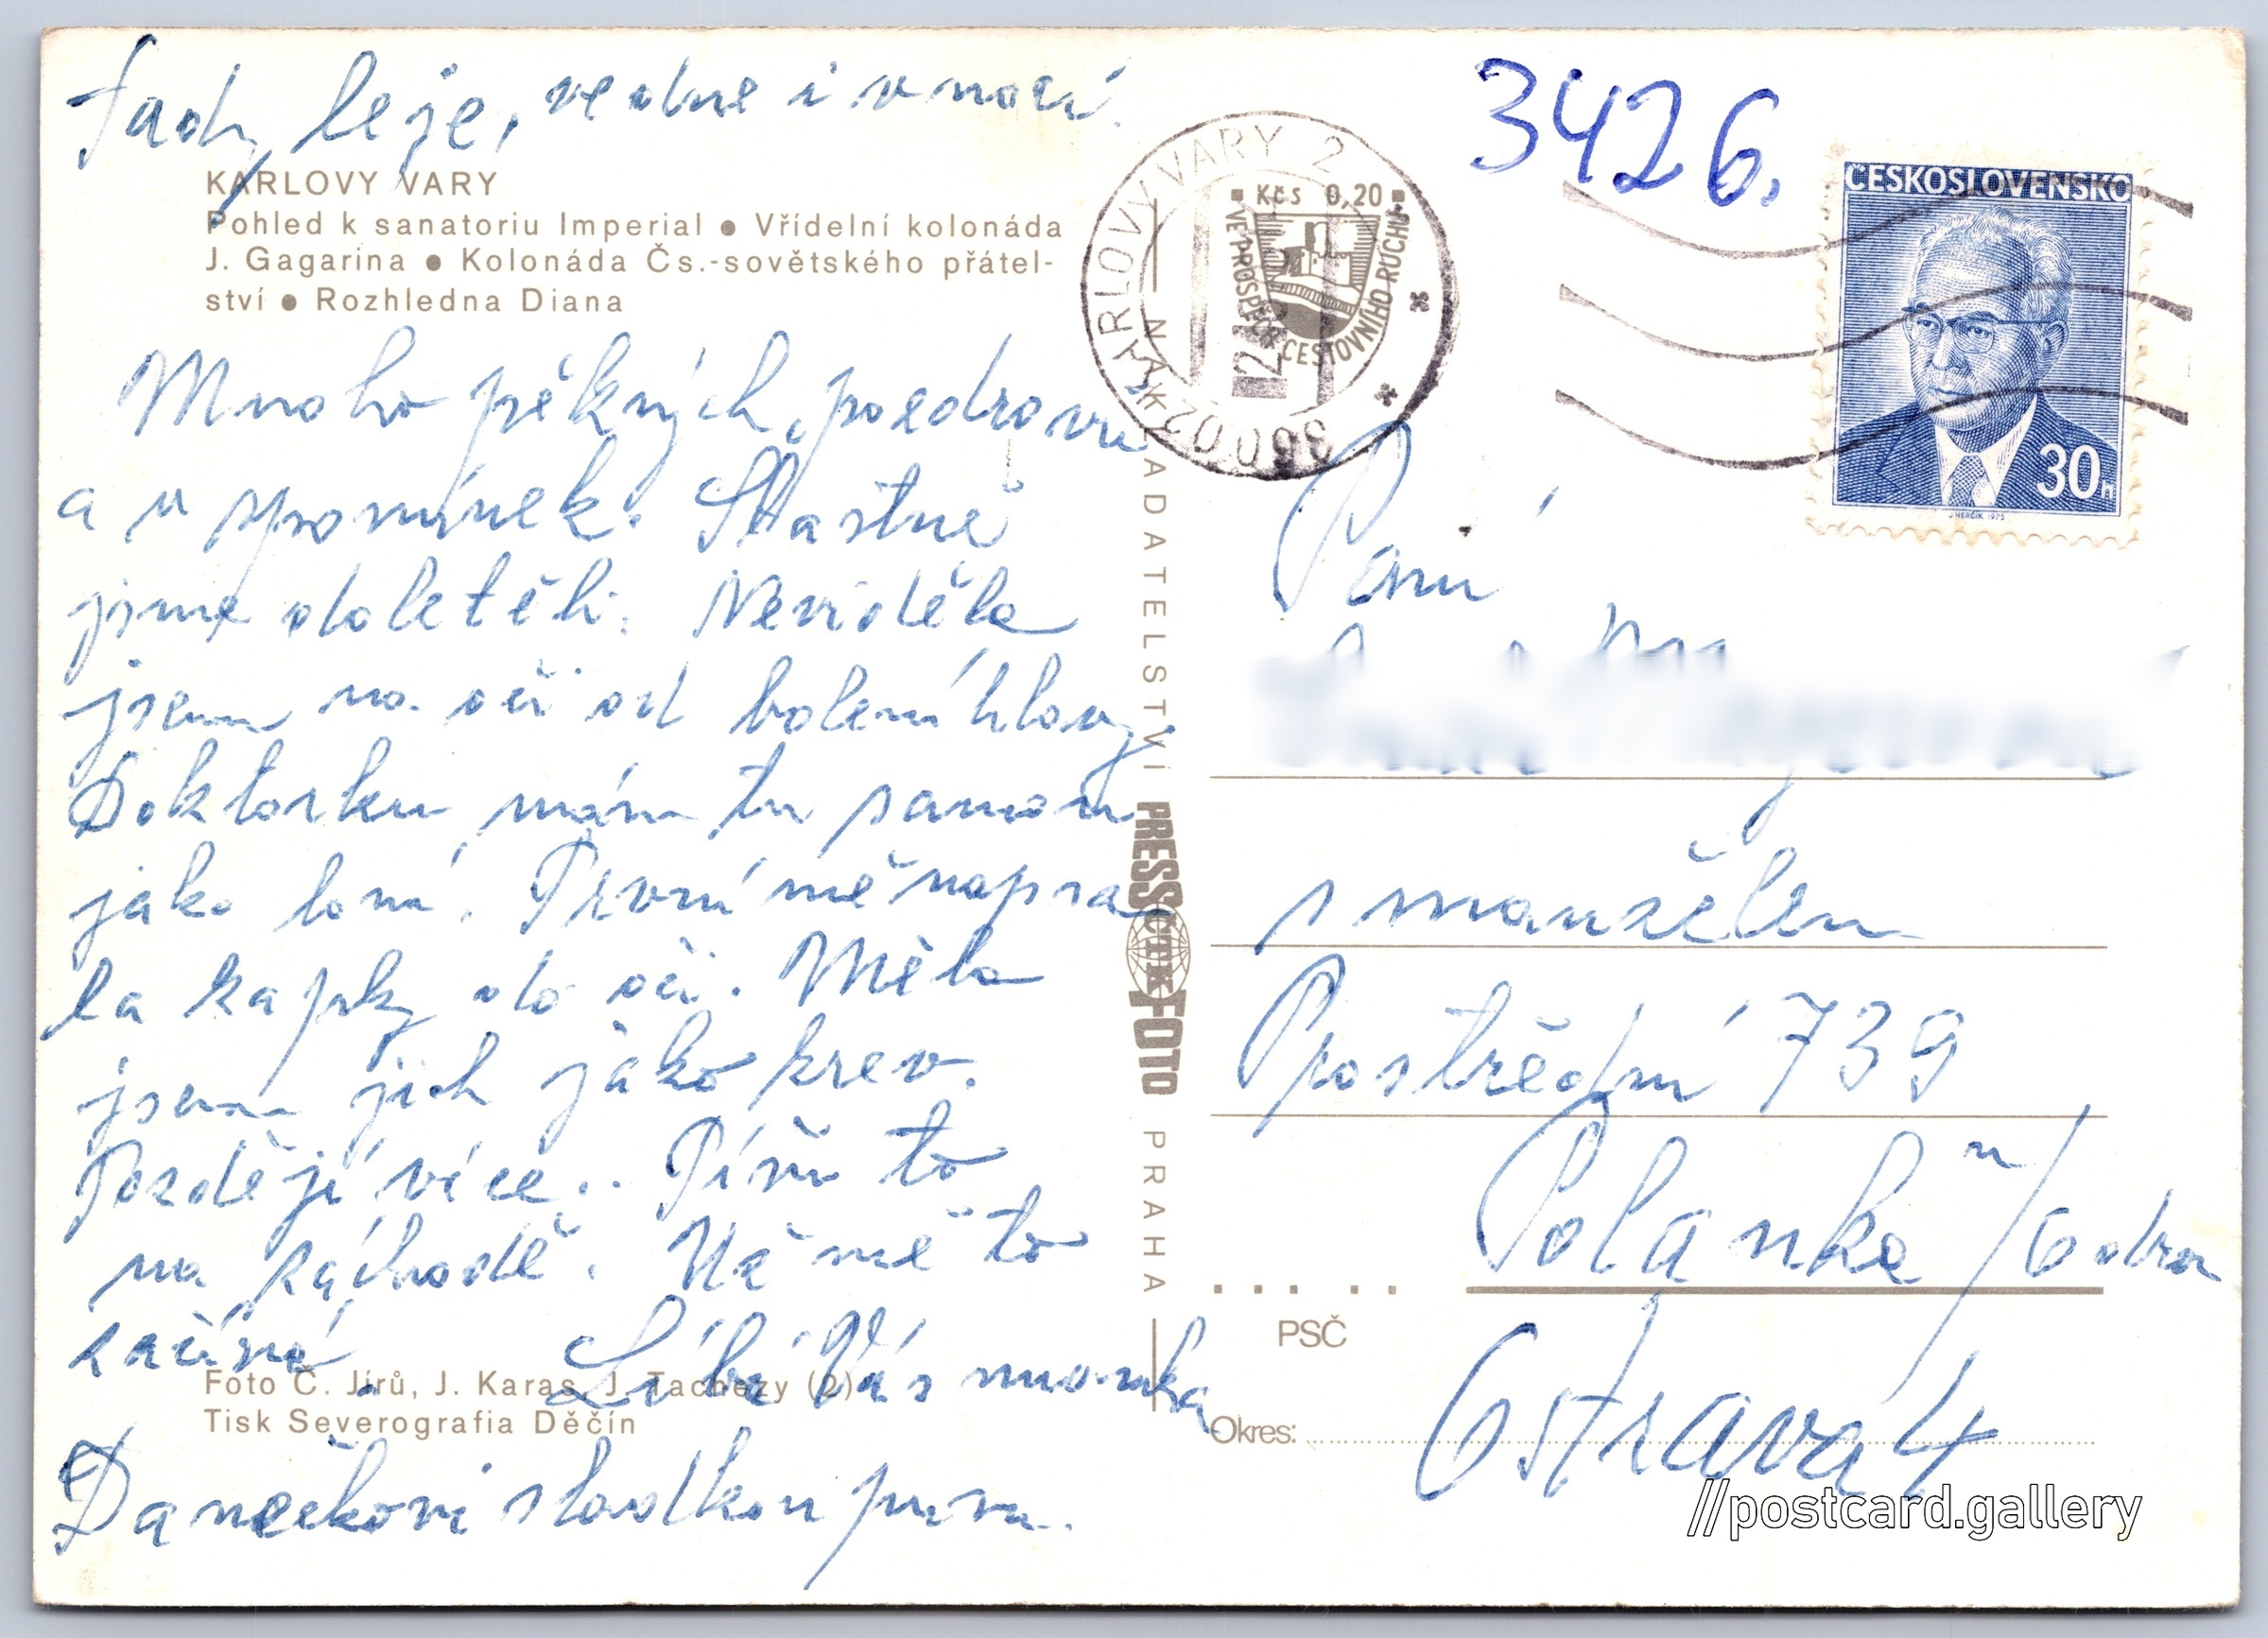 tady leje, ve dne i v noci.
3426.
KARLOVY VARY
Pohled k sanatoriu Imperial ● Vřídelní kolonáda
J. Gagarina ● Kolonáda Čs.-sovětského přátel-
ství ● Rozhledna Diana
KARLOVY VARY 2
360 02
Kčs 0,20
VE PROSPĚCH CESTOVNÍHO RUCHU
ČESKOSLOVENSKO
30h
J. HERČÍK 1975
Mnoho pěkných pozdravů
a vzpomínek. Šťastně
jsme doletěli. Neviděla
jsem na oči od bolení hlavy
Doktorku mám tu samou
jako loni. První mě napsa
la kapky do očí. Měla
jsem jich jako krev.
Později více.. Píši to
na
Už mě to
začíná. Líbá Vás
Foto Č. Jírů, J. Karas, J. Tachezy (2)
Tisk Severografia Děčín
Danečkovi sladkou pusu.
NAKLADATELSTVÍ PRESSFOTO PRAHA
ČTK
Paní
s manželem
Prostřední 739
Polanka n/Odrou
PSČ
Ostrava 4
Okres:
//postcard.gallery